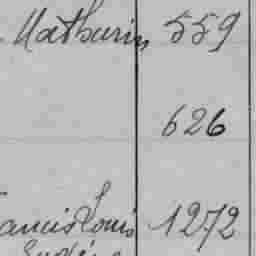 Mathurin 559
626
Francis Louis 1272